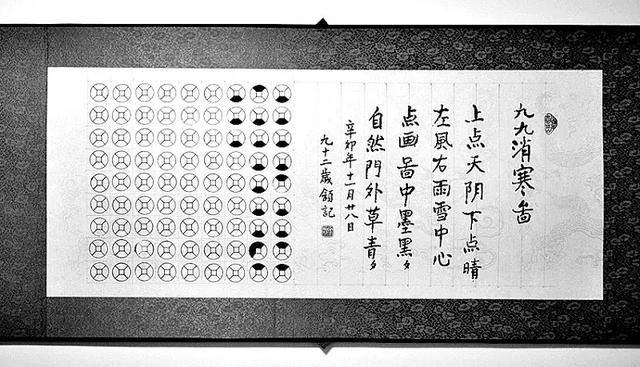 九九消寒啚
上点天阴下点晴
左風右雨雪中心
点画啚中墨黑々
自然門外草青々
辛卯年十一月廿八日
九十二歲顧記